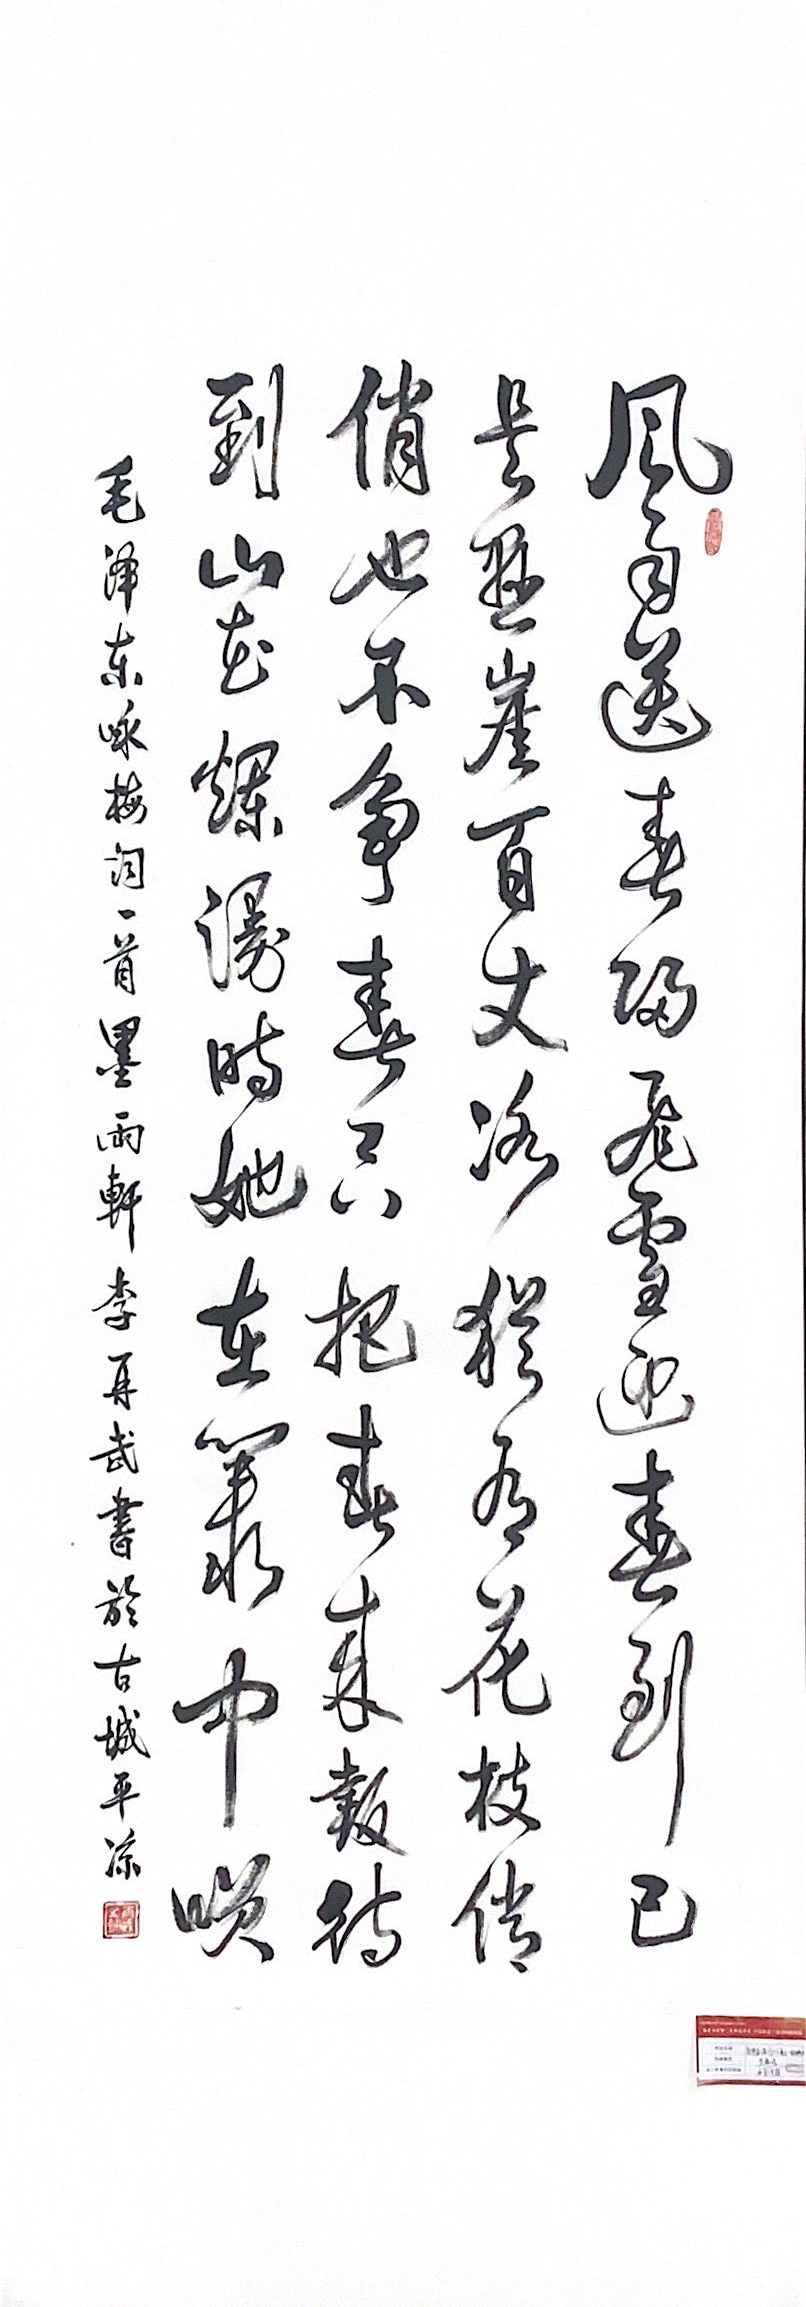 风雨送春归飞雪迎春到已
是悬崖百丈冰犹有花枝俏
俏也不争春只把春来報待
到山花爛漫時她在叢中咲
毛泽东咏梅词一首墨雨軒李再武書於古城平凉